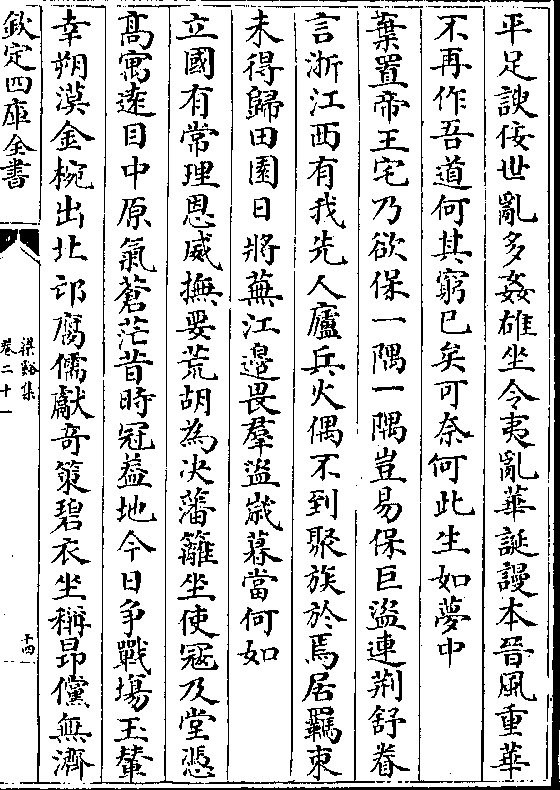 平足諛佞世亂多姦雄坐令夷亂華誕謾本晉風重華
不再作吾道何其窮已矣可奈何此生如夢中
棄置帝王宅乃欲保一隅一隅豈易保巨盜連荆舒眷
言浙江西有我先人廬兵火偶不到聚族於焉居羈束
未得歸田園日將蕪江邉畏羣盜歳暮當何如
立國有常理恩威撫要荒胡為决藩籬坐使冦及堂慿
髙寓逺目中原氣蒼茫昔時冠葢地今日争戰塲玉輦
幸朔漠金椀出北邙腐儒獻竒策碧衣坐稱昂儻無濟
欽定四庫全書
梁谿集
卷二十一
十四